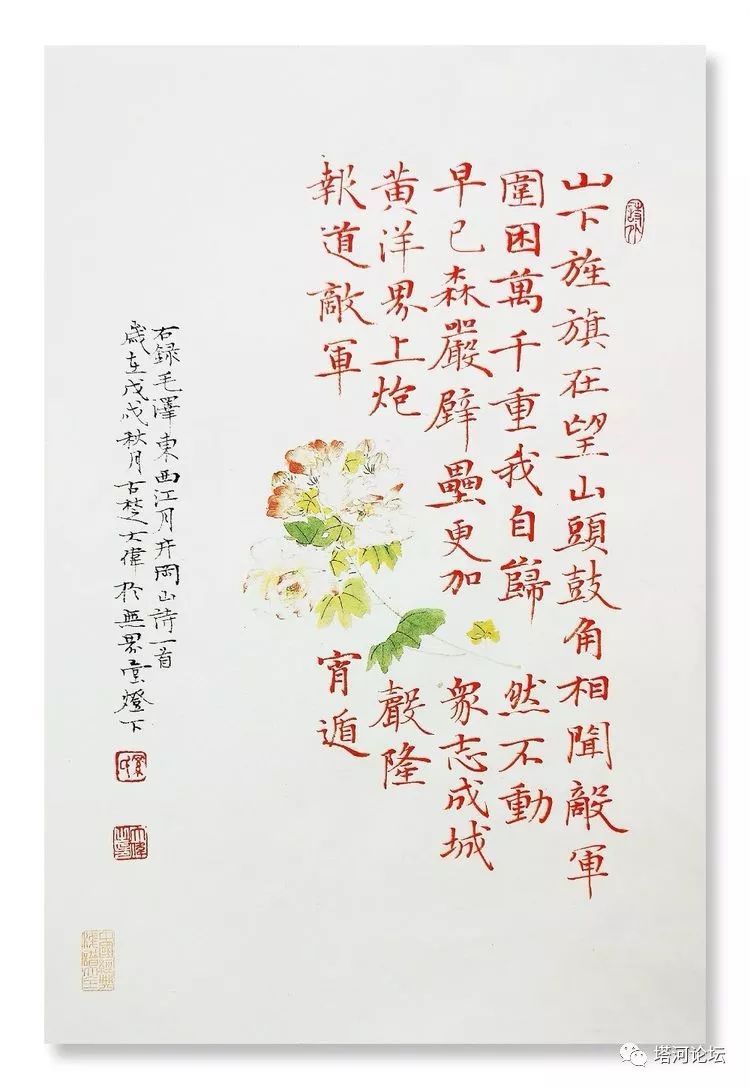 山下旌旗在望山頭鼓角相聞敵軍
圍困萬千重我自巋然不動
早已森嚴壁壘更加衆志成城
黄洋界上炮聲隆
報道敵軍宵遁
右録毛澤東西江月井岡山詩一首
歲在戊戌秋月古楚大偉於無界堂燈下
塔河论坛